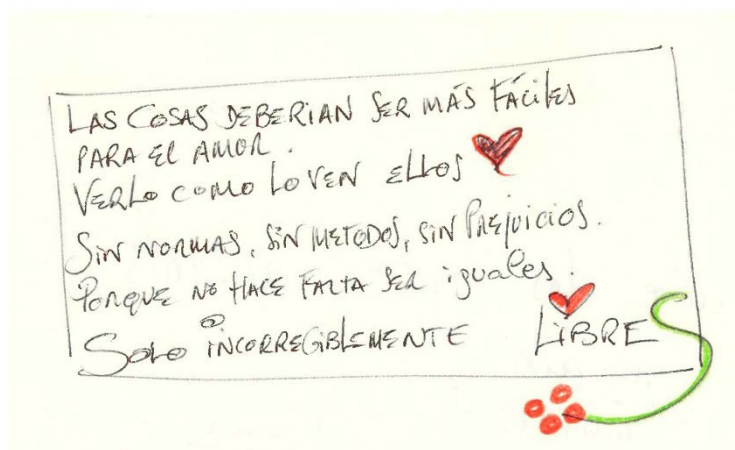 LAS COSAS DEBERIAN SER MÁS FÁCILES
PARA EL AMOR.
VERLO COMO LO VEN ELLOS
SIN NORMAS, SIN METODOS, SIN PREJUICIOS.
PORQUE NO HACE FALTA SER iguales.
SOLO INCORREGIBLEMENTE LIBRES